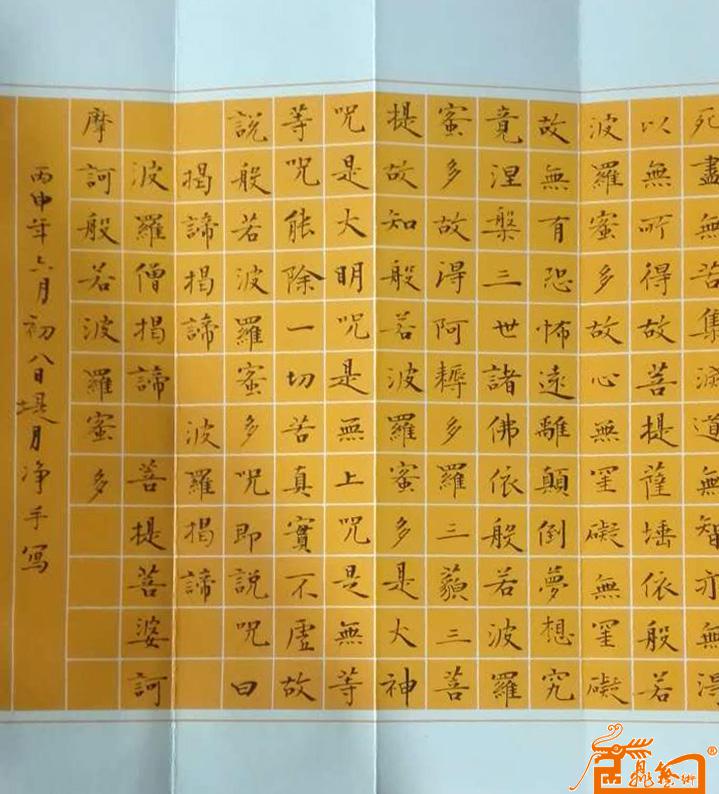 死盡無苦集滅道無智亦無得
以無所得故菩提薩埵依般若
波羅蜜多故心無罣礙無罣礙
故無有恐怖遠離顛倒夢想究
竟涅槃三世諸佛依般若波羅
蜜多故得阿耨多羅三藐三菩
提故知般若波羅蜜多是大神
咒是大明咒是無上咒是無等
等咒能除一切苦真實不虛故
說般若波羅蜜多咒即說咒曰
揭諦揭諦 波羅揭諦
波羅僧揭諦 菩提菩婆訶
摩訶般若波羅蜜多
丙申年六月初八日堤月净手写